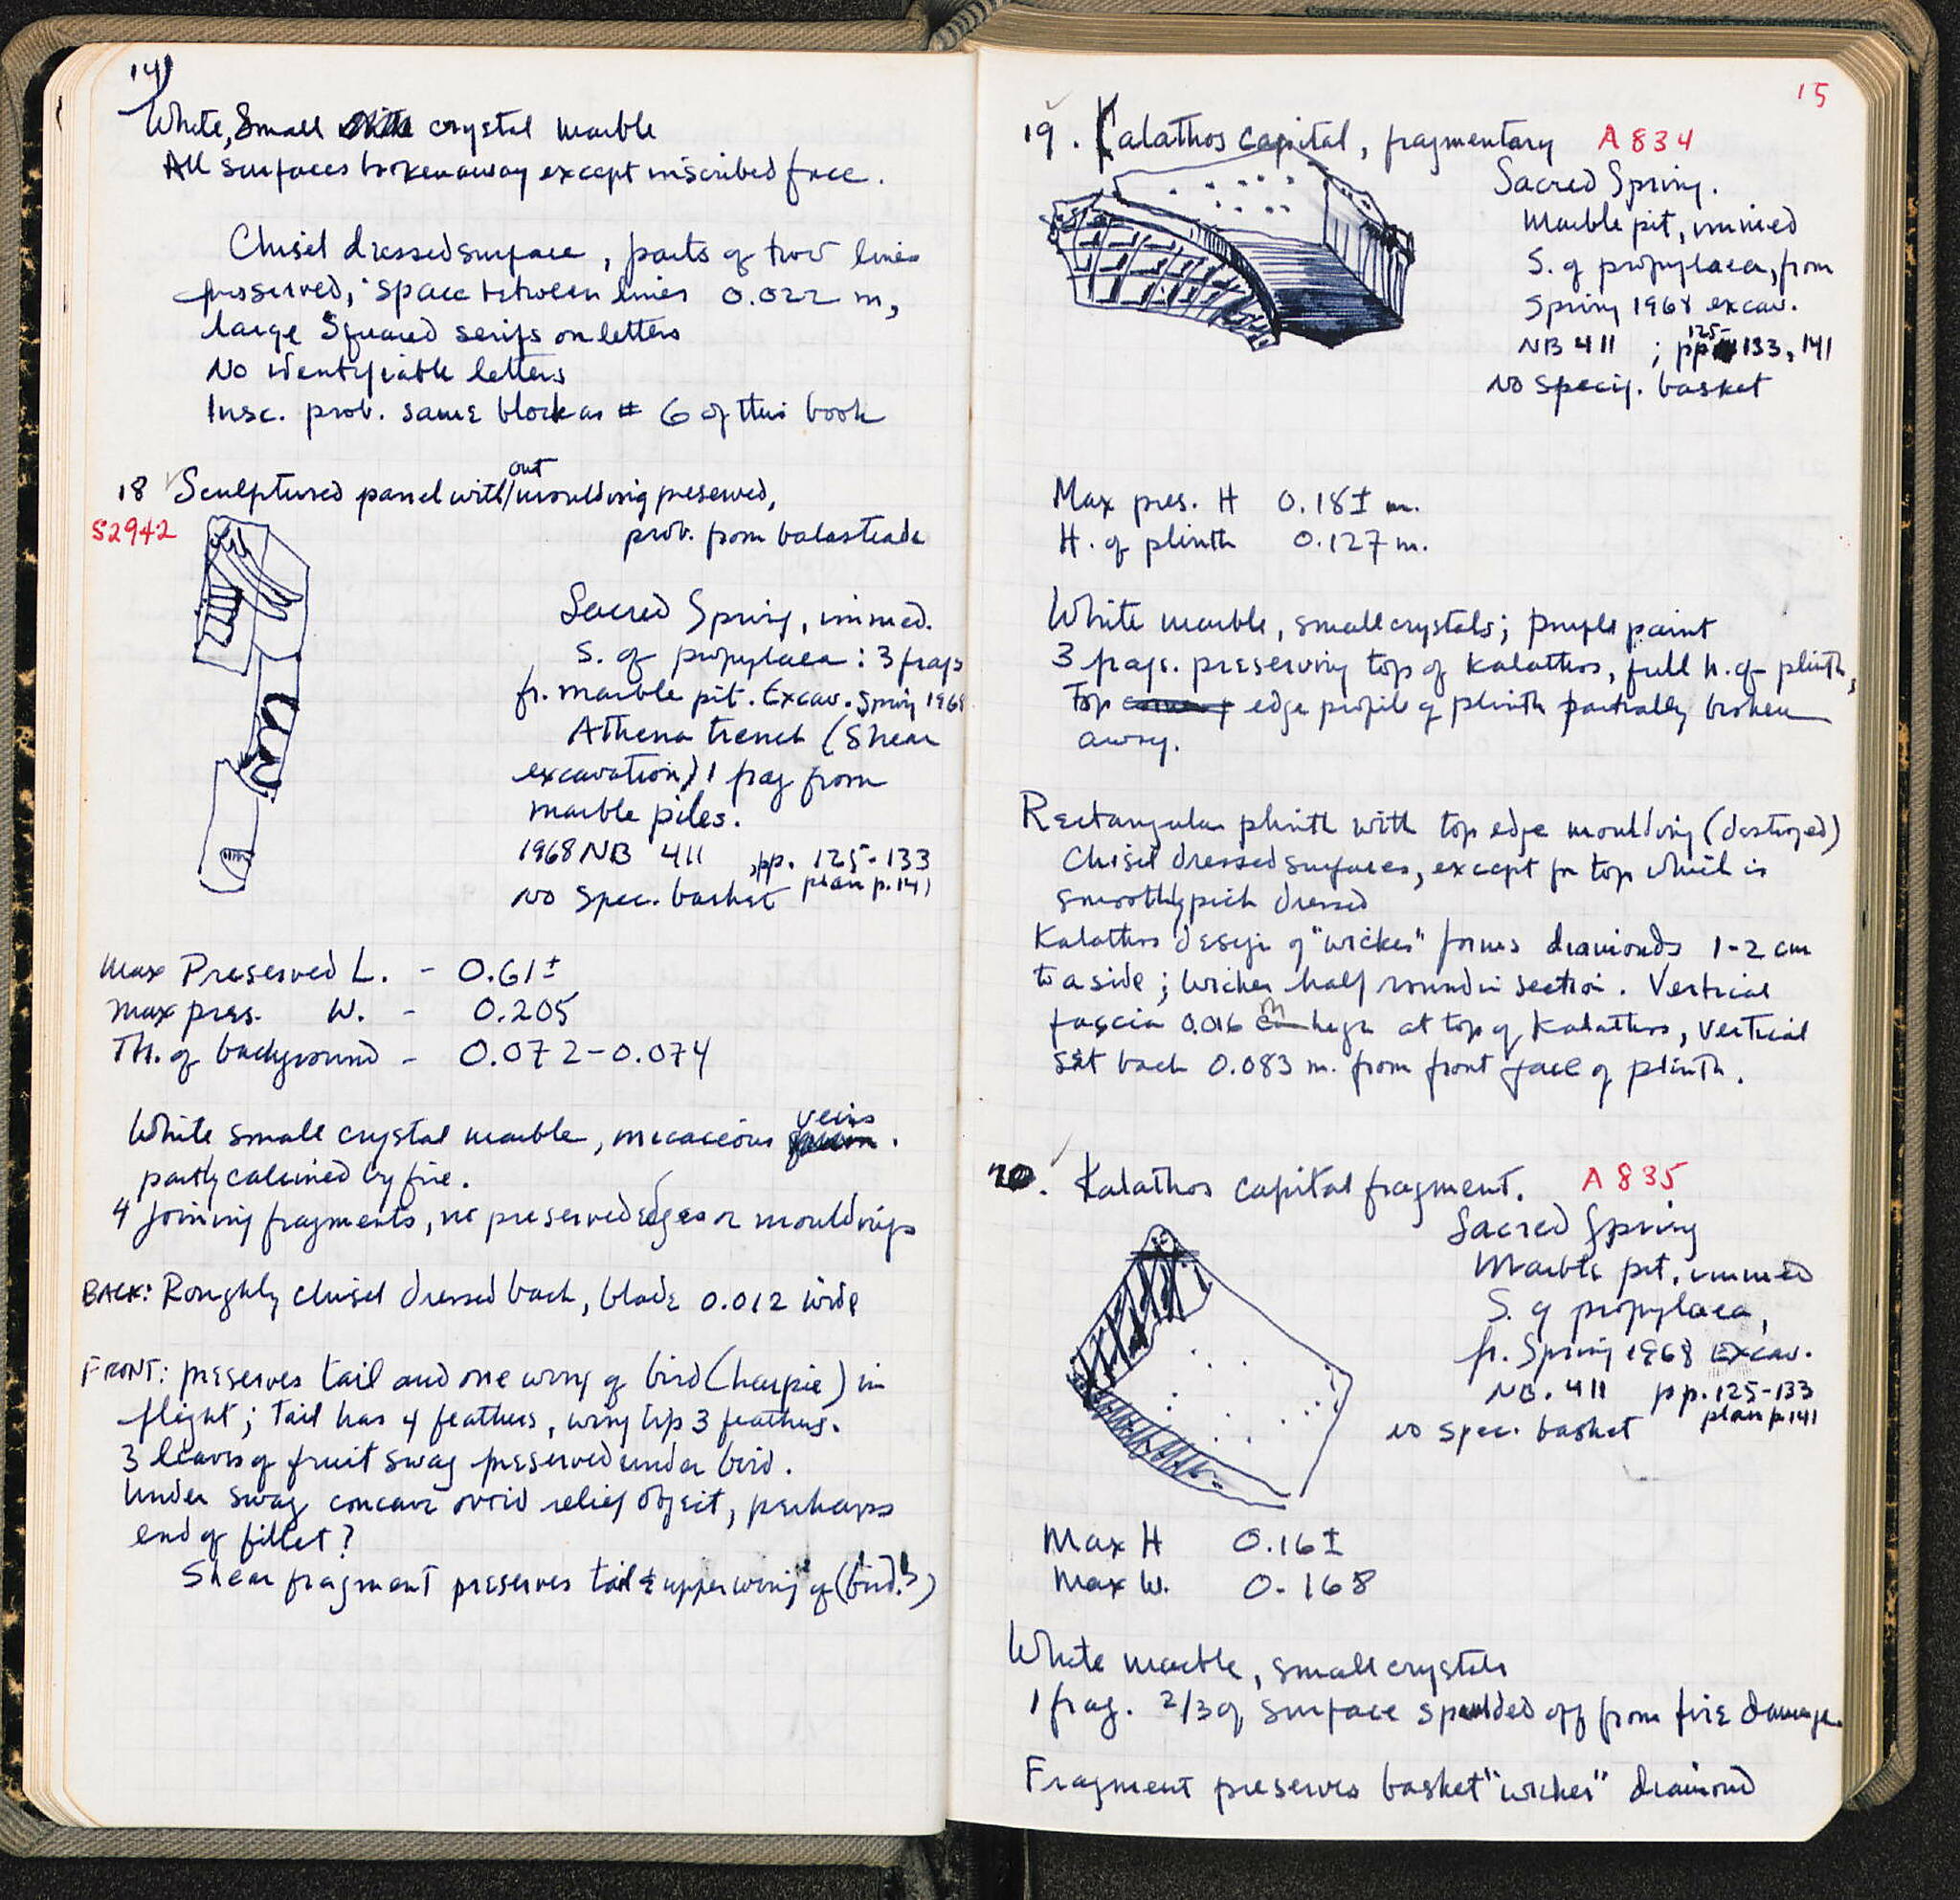 14)
White, Small crystal marble
All surfaces broken away except inscribed face.
Chisel dressed surface, parts of two lines
preserved; space between lines 0.022 m,
large Squared serifs on letters
No identifiable letters
Insc. prob. same block as # 6 of this book
18 Sculptured panel without moulding preserved,
S2942
prob. from balastrade
Sacred Spring, immed.
S. of propylaea: 3 frags
fr. marble pit. Excav. Spring 1968
Athena trench (Shear
excavation) 1 frag from
marble piles.
1968 NB 411 pp. 125-133
plan p. 141
No Spec. basket
Max Preserved L. - 0.61±
Max pres. W. - 0.205
Th. of background - 0.072-0.074
White small crystal marble, micaceous veins.
partly calcined by fire.
4 joining fragments, no preserved edges or mouldings
BACK: Roughly chisel dressed back, blade 0.012 wide
FRONT: preserves tail and one wing of bird (harpie) in
flight; Tail has 4 feathers, wing tip 3 feathers.
3 leaves of fruit swag preserved under bird.
Under swag concave ovoid relief object, perhaps
end of fillet?
Shear fragment preserves tail & upper wing of (bird?)
15
19. Kalathos capital, fragmentary A 834
Sacred Spring.
Marble pit, immed
S. of propylaea, from
Spring 1968 excav.
NB 411 ; pp 125-133, 141
No specif. basket
Max pres. H 0.18± m.
H. of plinth 0.127 m.
White marble, small crystals; purple paint
3 frags. preserving top of kalathos, full h. of plinth,
top edge profile of plinth partially broken
away.
Rectangular plinth with top edge moulding (destroyed)
Chisel dressed surfaces, except for top which is
smoothly pick dressed
Kalathos design of "wicker" forms diamonds 1-2 cm
to a side; wicker half round in section. Vertical
fascia 0.016 m high at top of kalathos, vertical
set back 0.083 m. from front face of plinth.
20. Kalathos capital fragment. A 835
Sacred Spring
Marble pit, immed
S. of propylaea,
fr. Spring 1968 Excav.
NB. 411 pp. 125-133
plan p. 141
no spec. basket
Max H 0.16±
Max W. 0.168
White marble, small crystals
1 frag. 2/3 of surface spaulded off from fire damage.
Fragment preserves basket "wicker" diamond